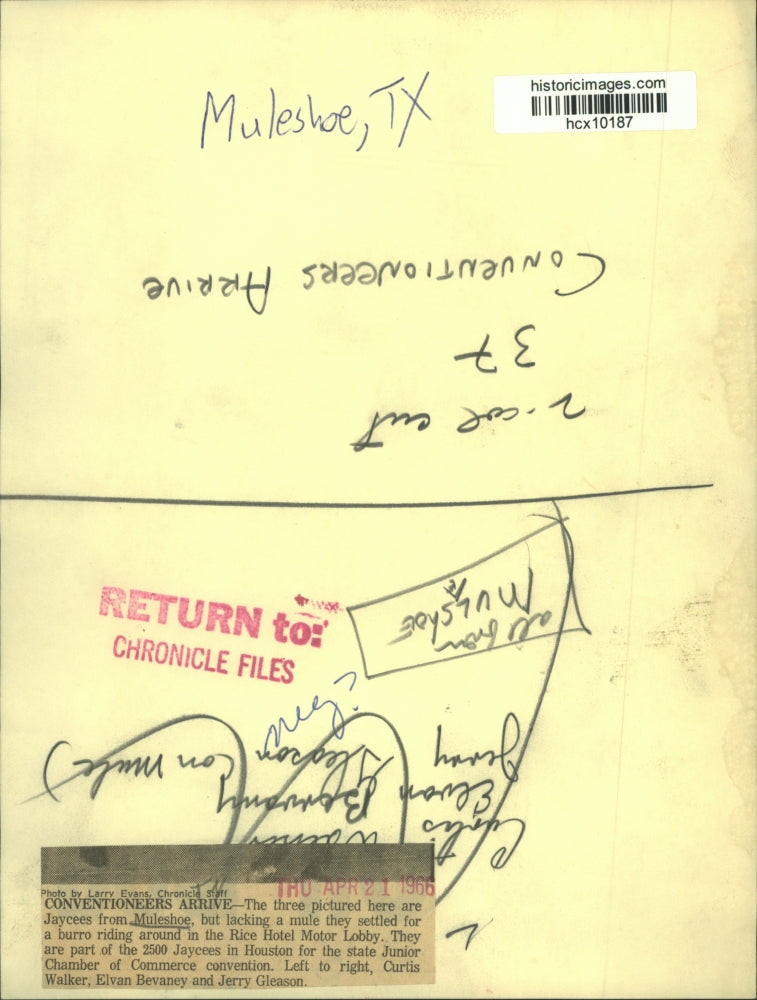 historicimages.com
hcx10187
Muleshoe, TX
CONVENTIONEERS ARRIVE
37
2-col cut
all from
MULESHOE
RETURN to:
CHRONICLE FILES
neg?
Jerry Gleason (on mule)
Elvan Bevvany
Curtis Walker
THU APR 21 1966
Photo by Larry Evans, Chronicle Staff
CONVENTIONEERS ARRIVE—The three pictured here are
Jaycees from Muleshoe, but lacking a mule they settled for
a burro riding around in the Rice Hotel Motor Lobby. They
are part of the 2500 Jaycees in Houston for the state Junior
Chamber of Commerce convention. Left to right, Curtis
Walker, Elvan Bevaney and Jerry Gleason.